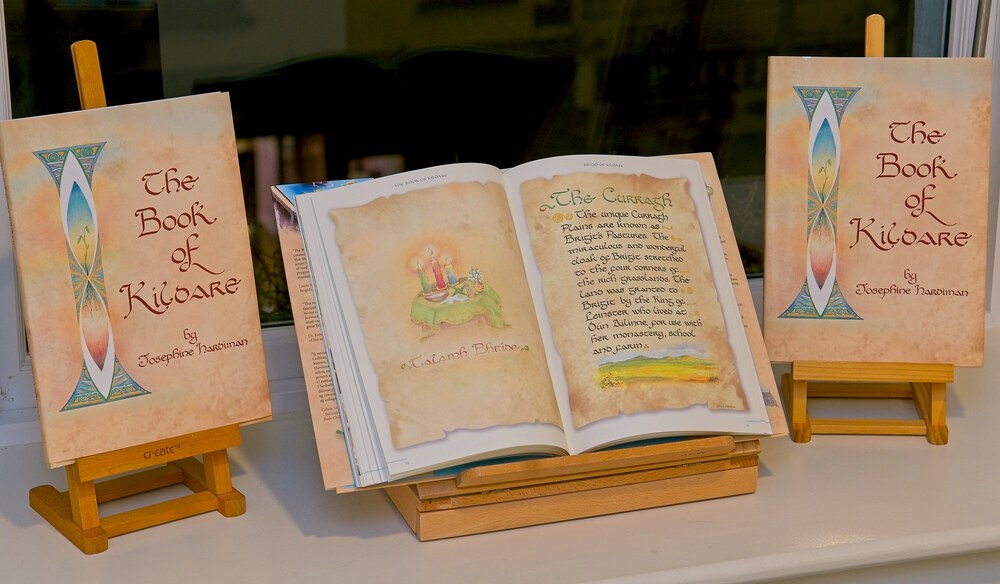 The
Book
of
Kildare
by
Josephine Hardiman
create
THE BOOK OF KILDARE
Talamh Bhride
The Curragh
The unique Curragh
Plains are known as
Brigit's Pastures. The
miraculous and wonderful
cloak of Brigit stretched
to the four corners of
the rich grasslands. The
land was granted to
Brigit by the King of
Leinster who lived at
Dún Ailinne, for use with
her monastery, school
and farm.
The
Book
of
Kildare
by
Josephine Hardiman